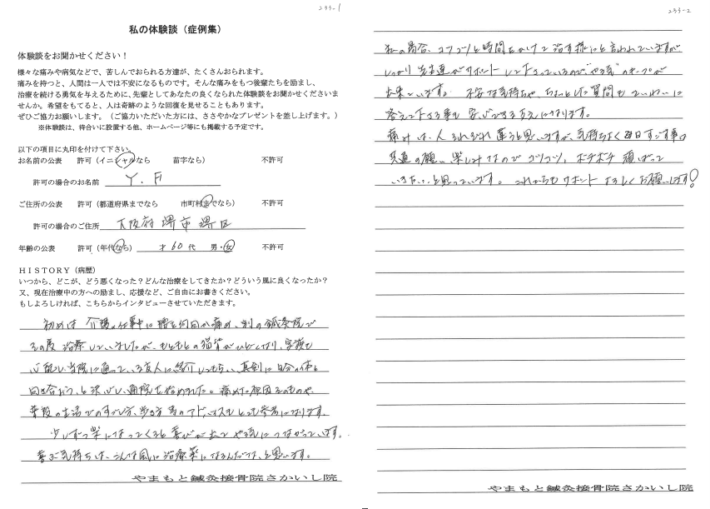 233-1
私の体験談（症例集）
体験談をお聞かせください！
様々な痛みや病気などで、苦しんでおられる方達が、たくさんおられます。
痛みを持つと、人間は一人では不安になるものです。そんな痛みをもつ後輩たちを励まし、
治療を続ける勇気を与えるために、先輩としてあなたの良くなられた体験談をお聞かせくださいま
せんか。希望をもてると、人は奇跡のような回復を見せることもあります。
ぜひご協力お願いします。（ご協力いただいた方には、ささやかなプレゼントを差し上げます。）
※体験談は、待合いに設置する他、ホームページ等にも掲載する予定です。
以下の項目に丸印を付けて下さい。
お名前の公表　許可（イニシャルなら　苗字なら）　不許可
許可の場合のお名前　Y. F
ご住所の公表　許可（都道府県までなら　市町村までなら）　不許可
許可の場合のご住所　大阪府堺市堺区
年齢の公表　許可（年代なら）　60代　男・女　不許可
HISTORY（病歴）
いつから、どこが、どう悪くなった？どんな治療をしてきたか？どういう風に良くなったか？
又、現在治療中の方への励まし、応援など、ご自由にお書きください。
もしよろしければ、こちらからインタビューさせていただきます。
初めは 介護の仕事中に腰を何回か痛め、別の鍼灸院で
その度 治療していましたが、もともとの猫背がひどくなり、
当院に通っている友人に紹介してもらい、真剣に自分の体と
向き合おうと決心し通院を始めました。痛めた原因そのものや
普段の生活での すごし方、歩き方 等のアドバイスもとても参考になります。
少しずつ楽になってくると 喜びが出て やる気につながっています。
喜ぶ気持ちは、こんな風に治療薬になるんだな、と思います。
やまもと鍼灸接骨院さかいし院
233-2
私の場合、コツコツと時間をかけて治す様にと言われていますが
しっかり先生達がサポートして下さっているので "やる気"のキープが
出来ています。不安な気持ちや、ちょっとした質問も ていねいに
答えて下さる事も 安心できる支えになります。
痛みは、人それぞれ違うと思いますが、気持ちよく毎日すごす事は
共通の願い。楽しみなので コツコツ、ボチボチ 頑ばって
いきたい、と思っています。これからもサポートよろしくお願いします!
やまもと鍼灸接骨院さかいし院